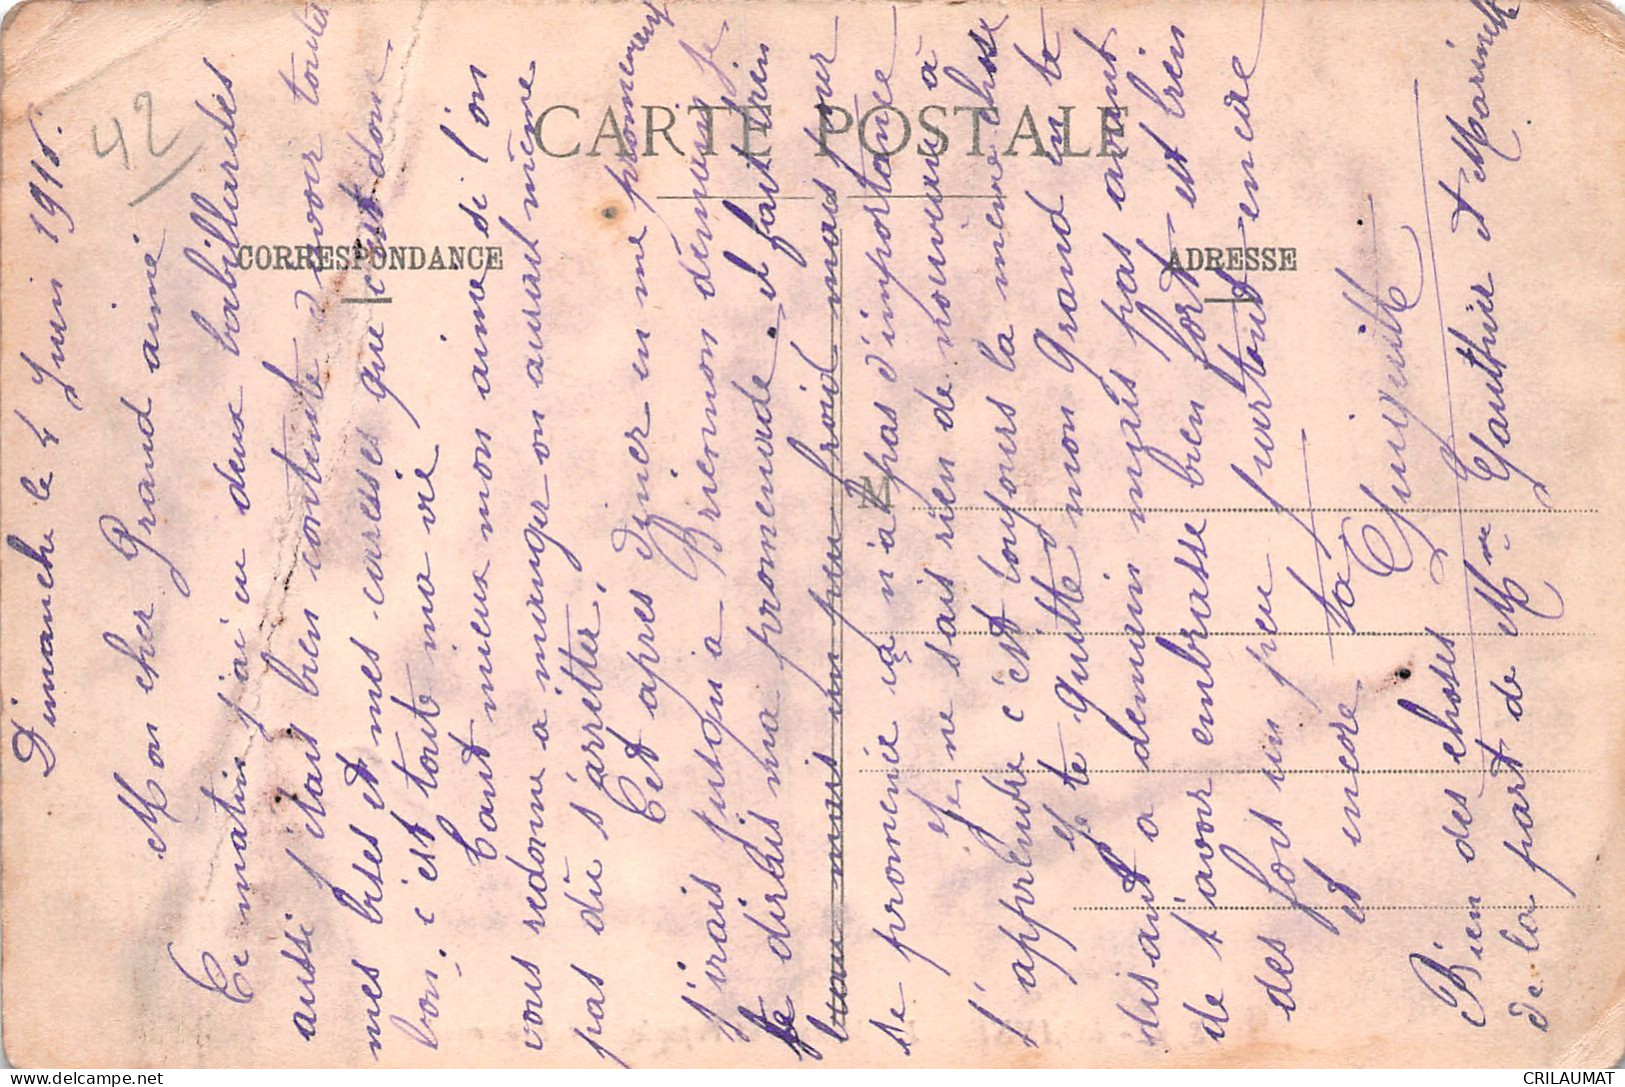 CARTE POSTALE
CORRESPONDANCE
ADRESSE
42
Dimanche le 4 Juin 1916.
Mon cher Grand aimé
Ce matin j'ai eu deux babillardes
aussi j'étais bien contente d'avoir toutes
mes bises et mes caresses que c'est donc
bon, c'est toute ma vie
Tant mieux mon aimé si l'on
vous redonne a manger on aurait même
pas dû s'arretter,
Cet apres diner en me promenant
j'irais jusqu'a Brienon demain je
te dirais ma promenade. il fait bien
beau mais un peu froid mais pour
se promener ça n'a pas d'importance
Je ne sais rien de nouveau à
t'apprendre c'est toujours la même chose
Je te quitte mon Grand en te
disant a demain mais pas avant
de t'avoir embrasse bien fort et bien
des fois un peu partout encore
et encore ta Guiguitte
Bien des choses de Mme Gauthier et Marinette
de la part de
CRILAUMAT